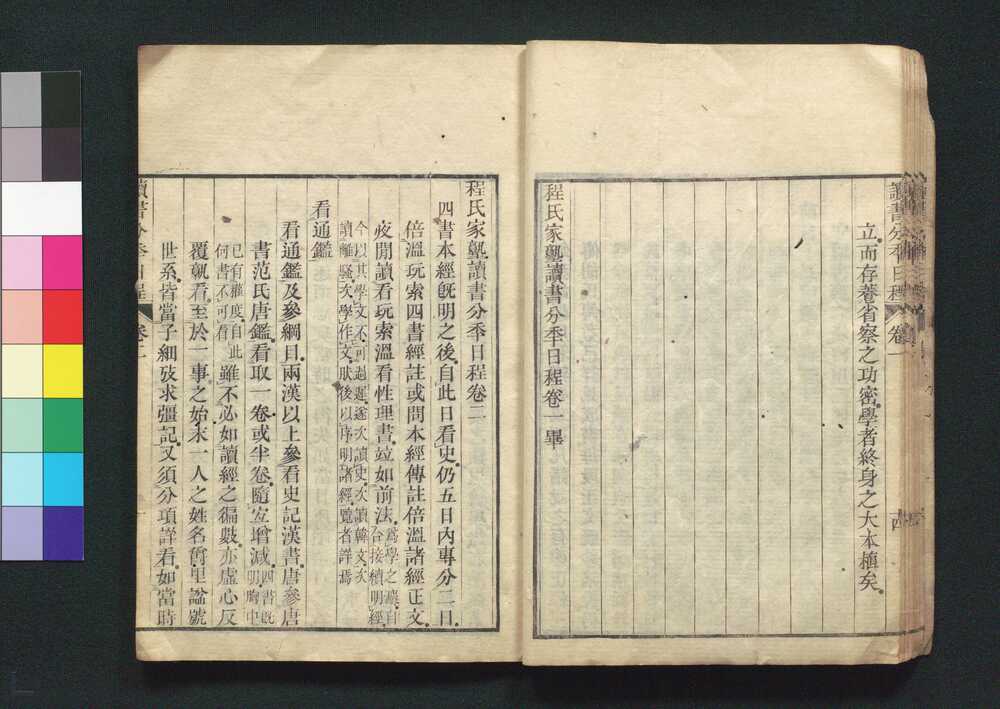 讀書分秊日程 卷一 十四
立而存養省察之功密學者終身之大本植矣
程氏家塾讀書分秊日程卷一畢
程氏家塾讀書分秊日程卷二
四書本經旣明之後自此日看史仍五日內專分二日
倍溫玩索四書經註或問本經傳註倍溫諸經正文
夜閒讀看玩索溫看性理書竝如前法爲學之法自合接續明經
今以其學文不可過遲遂次讀史次讀韓文次
讀離騷次學作文肰後以序明諸經覽者詳焉
看通鑑
看通鑑及參綱目兩漢以上參看史記漢書唐參唐
書范氏唐鑑看取一卷或半卷隨宐增減四書旣明胸中
已有權度自此何書不可看雖不必如讀經之徧數亦虛心反
覆熟看至於一事之始末一人之姓名爵里謚號
世系皆當子細攷求彊記又須分項詳看如當時
讀書分秊日程 卷二